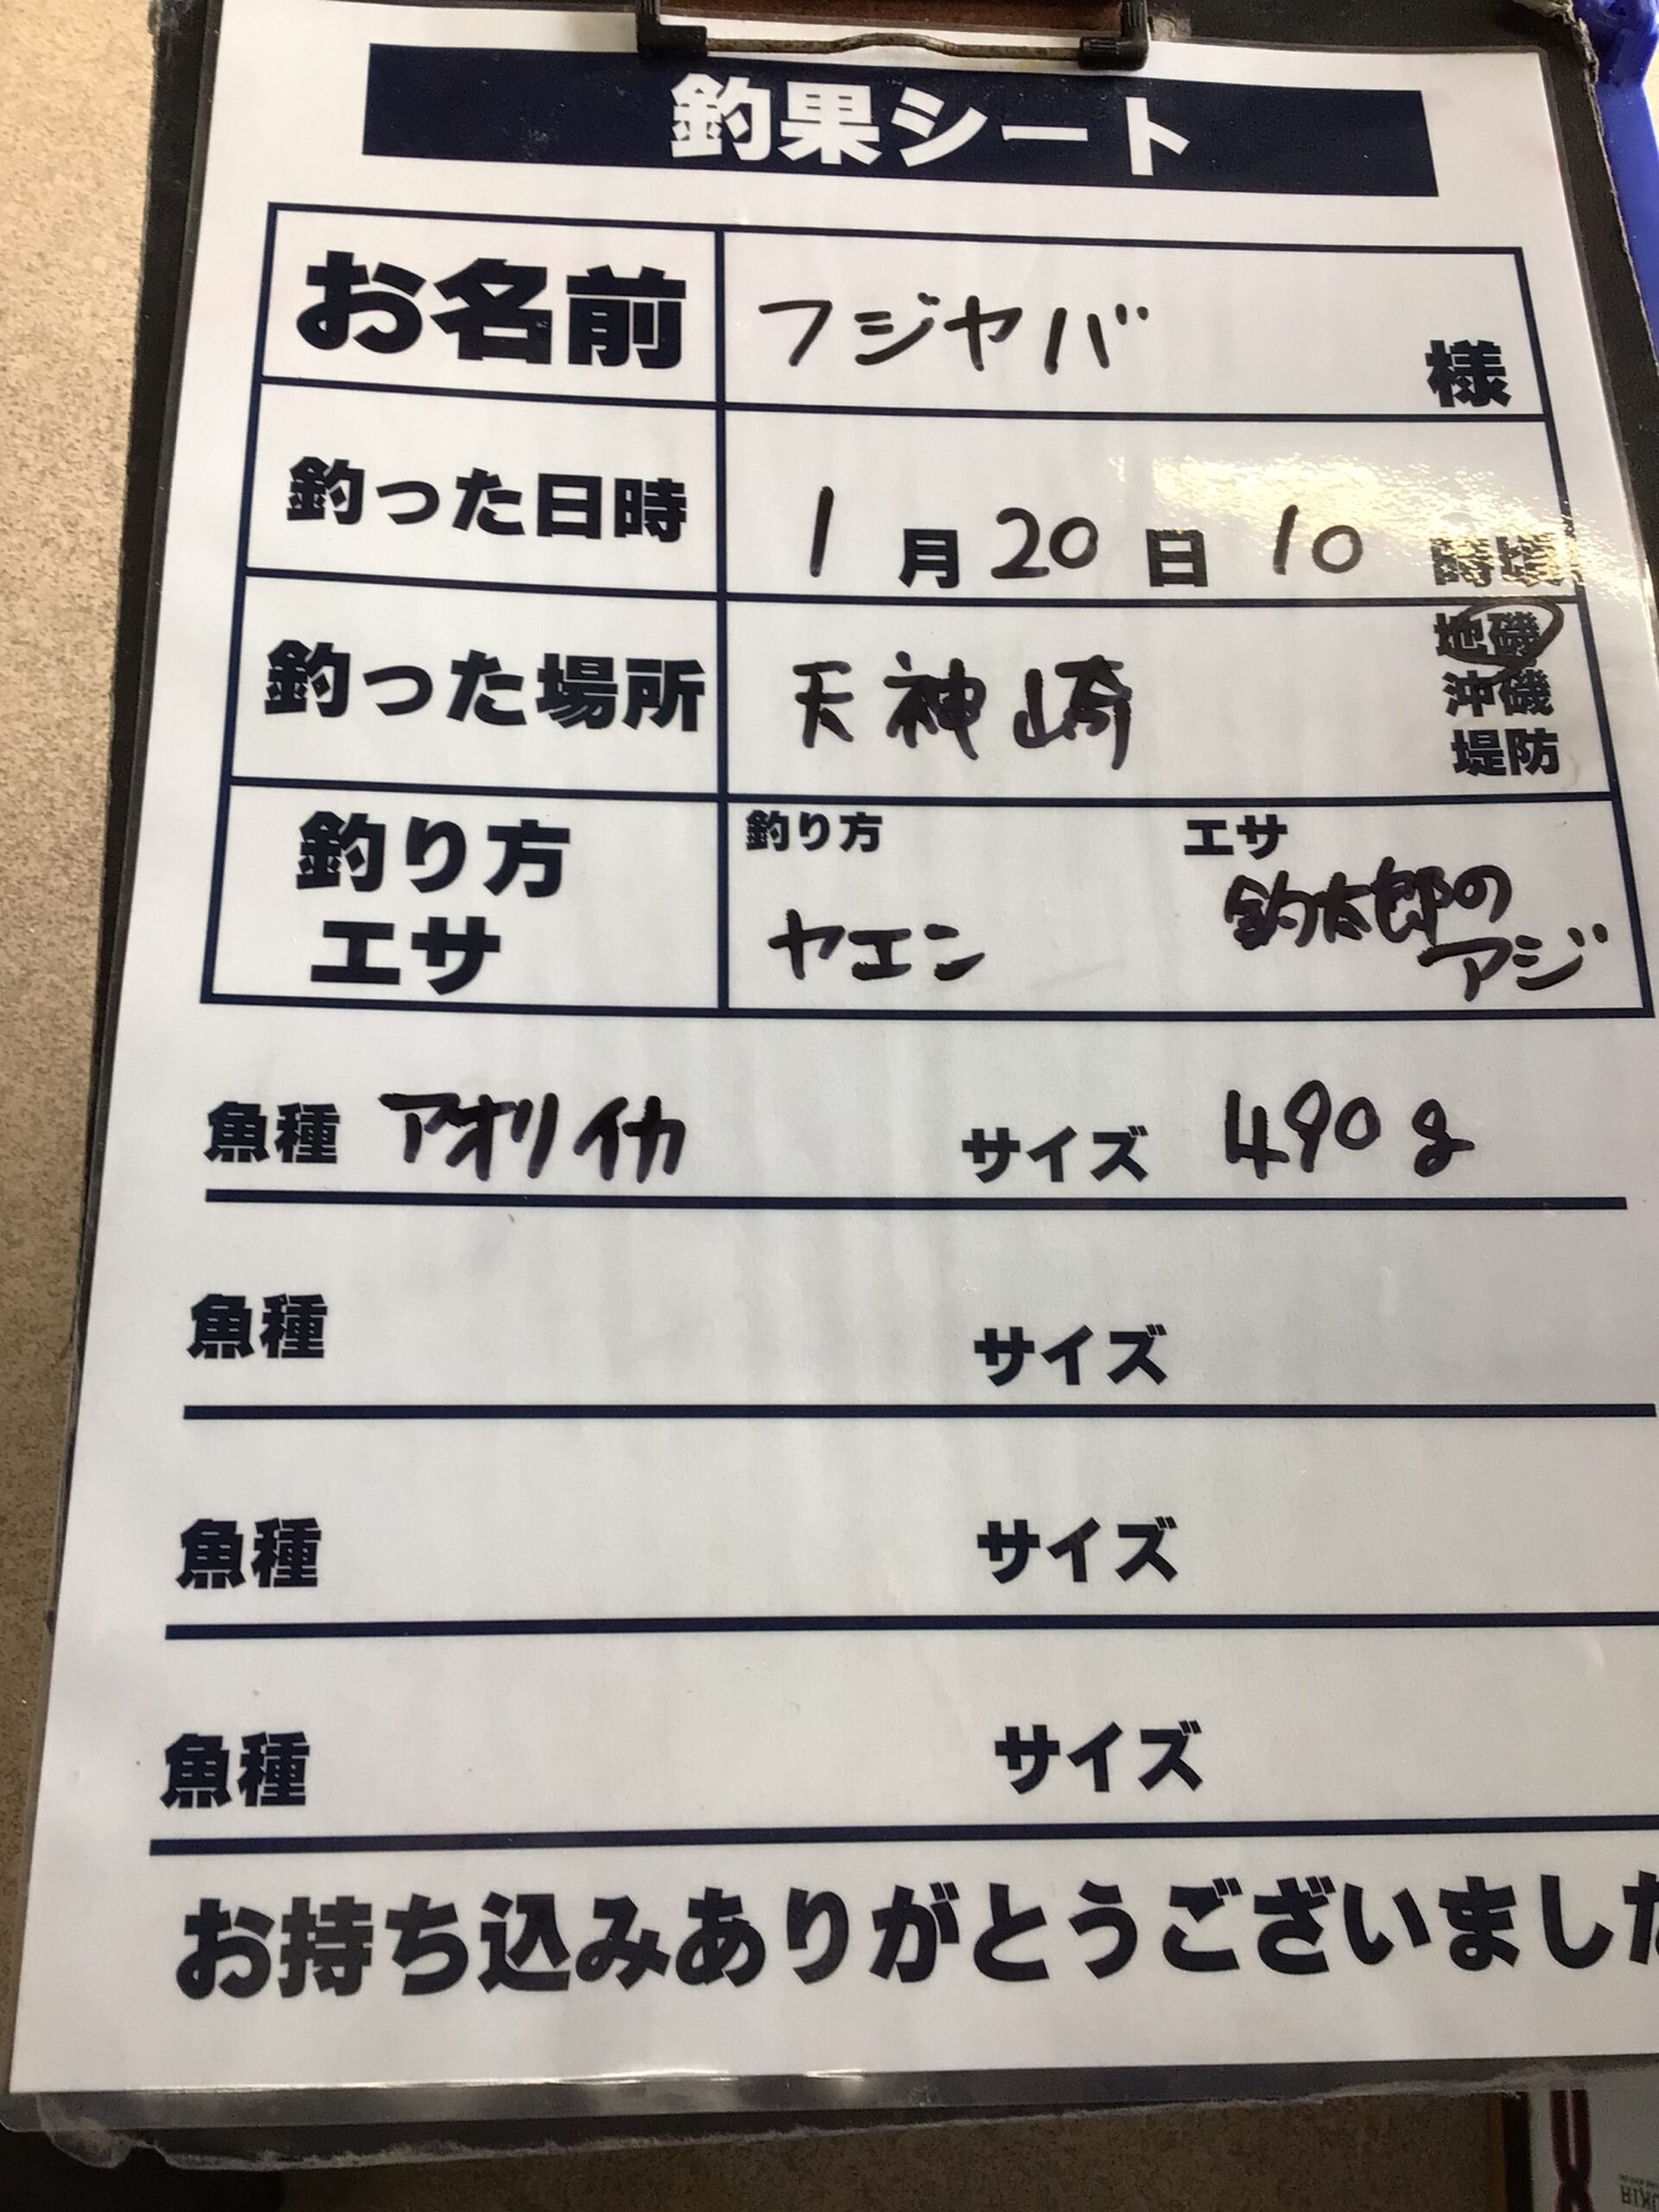 釣果シート
お名前 フジヤバ 様
釣った日時 1月20日10時頃
釣った場所 天神崎 地磯
沖磯
堤防
釣り方 エサ
釣り方 ヤエン
エサ 釣太郎の
アジ
魚種 アオリイカ サイズ 490g
魚種 サイズ
魚種 サイズ
魚種 サイズ
お持ち込みありがとうございました